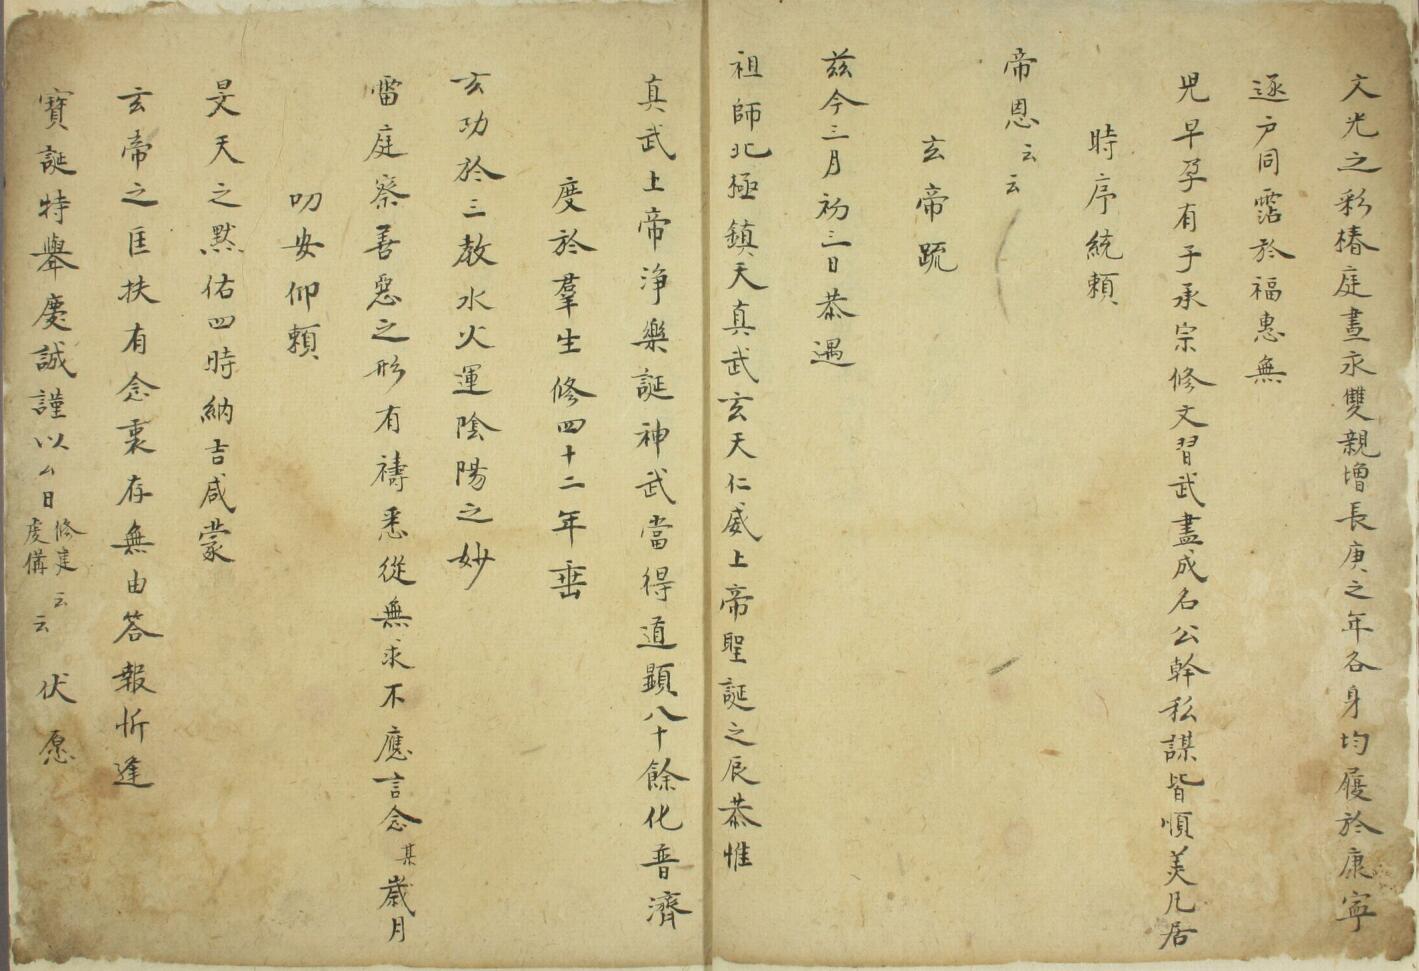 文光之彩椿庭晝永雙親增長庚之年各身均履於康寧
逐户同霑於福惠無
児早孕有子承宗修文習武盡成名公幹私謀皆順美凡居
時序統頼
帝恩云云
玄帝疏
兹今三月初三日恭遇
祖師北極鎮天真武玄天仁威上帝聖誕之辰恭惟
真武上帝浄樂誕神武當得道顯八十餘化普濟
度於羣生修四十二年垂
玄功於三教水火運陰陽之妙
雷庭察善惡之形有禱悉從無求不應言念某歲月
叨安仰頼
旻天之黙佑四時納吉咸蒙
玄帝之匡扶有念裏存無由答報忻逢
寶誕特舉慶誠謹以厶日修建虔備云云伏愿